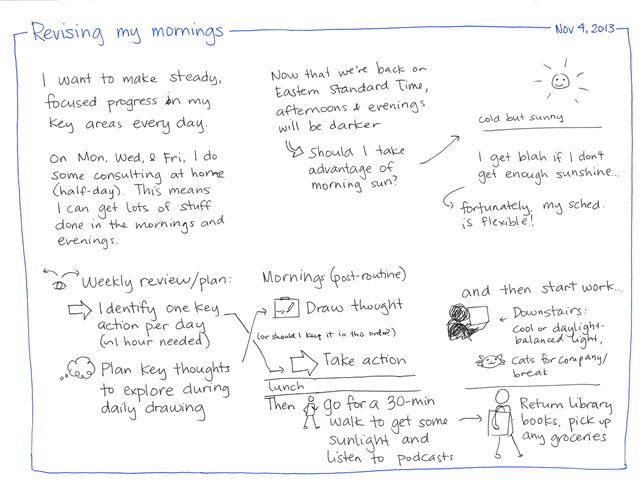 Revising my mornings
Nov 4, 2013
I want to make steady,
focused progress in my
key areas every day.
On Mon, Wed, & Fri, I do
some consulting at home
(half-day). This means
I can get lots of stuff
done in the mornings and
evenings.
Now that we're back on
Eastern Standard Time,
afternoons & evenings
will be darker
Should I take
advantage of
morning sun?
cold but sunny
I get blah if I don't
get enough sunshine...
fortunately, my sched.
is flexible!
Weekly review/plan:
I identify one key
action per day
(~1 hour needed)
Plan key thoughts
to explore during
daily drawing
Mornings (post-routine)
Draw thought
(or should I keep it in this order?)
Take action
lunch
Then go for a 30-min
walk to get some
sunlight and
listen to podcasts
and then start work...
Downstairs:
cool or daylight-
balanced light,
cats for company/
break
Return library
books, pick up
any groceries